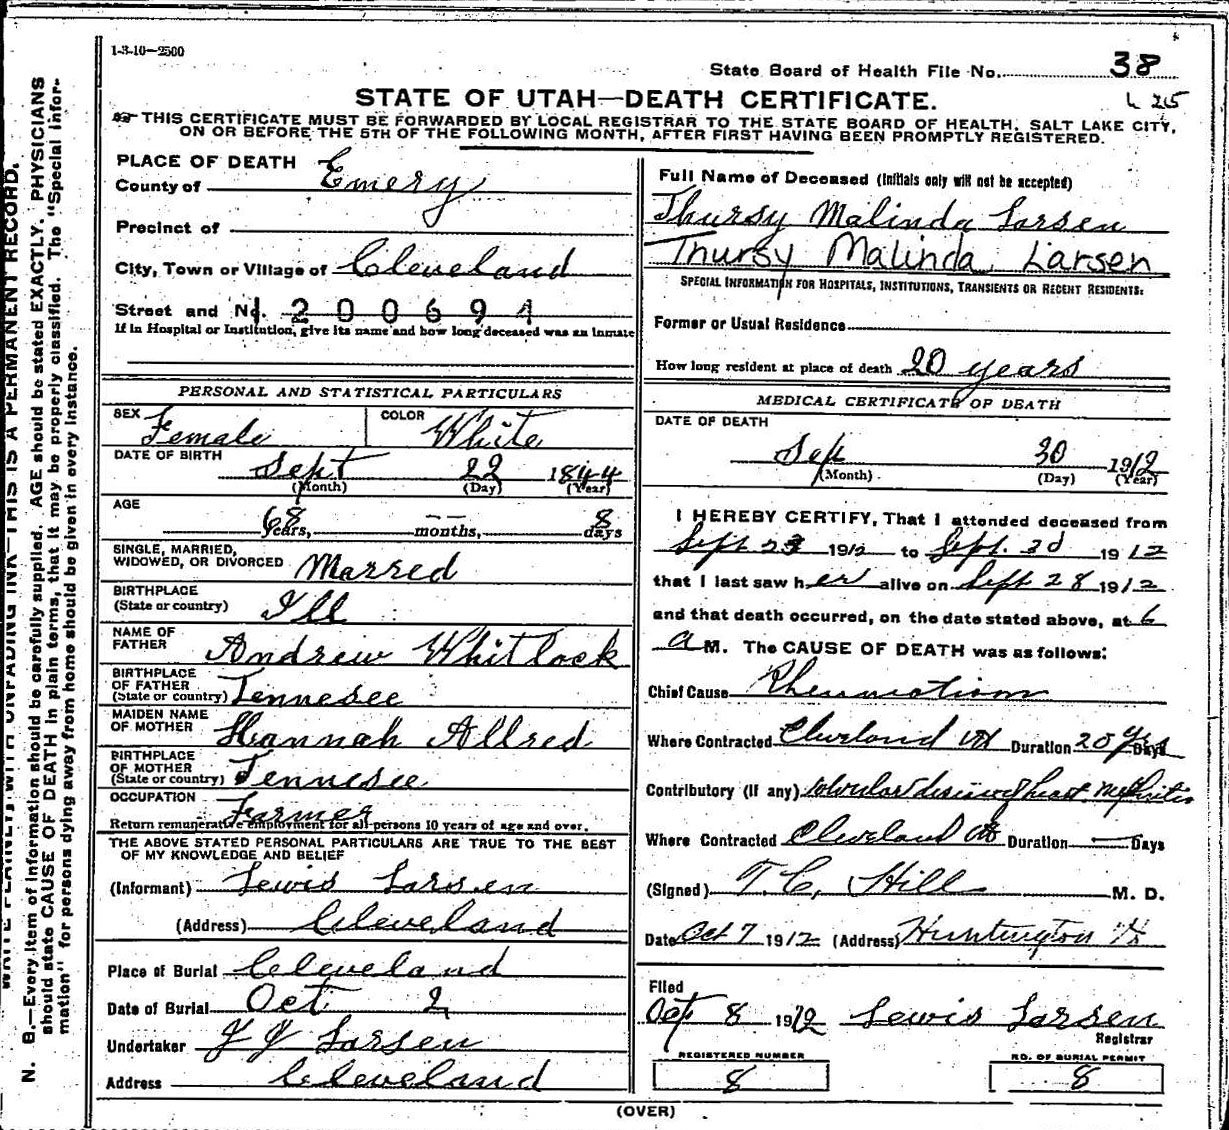 1-3-10—2500
State Board of Health File No. 38
L 215
STATE OF UTAH—DEATH CERTIFICATE.
THIS CERTIFICATE MUST BE FORWARDED BY LOCAL REGISTRAR TO THE STATE BOARD OF HEALTH, SALT LAKE CITY,
ON OR BEFORE THE 5TH OF THE FOLLOWING MONTH, AFTER FIRST HAVING BEEN PROMPTLY REGISTERED.
WRITE PLAINLY WITH UNFADING INK—THIS IS A PERMANENT RECORD.
N. B.—Every item of information should be carefully supplied. AGE should be stated EXACTLY. PHYSICIANS
should state CAUSE OF DEATH in plain terms, that it may be properly classified. The "Special Infor-
mation" for persons dying away from home should be given in every instance.
PLACE OF DEATH
County of Emery
Precinct of
City, Town or Village of Cleveland
Street and No. 1200694
If in Hospital or Institution, give its name and how long deceased was an inmate
PERSONAL AND STATISTICAL PARTICULARS
SEX Female COLOR White
DATE OF BIRTH Sept 22 1844
(Month) (Day) (Year)
AGE 68 years, — — months, 8 days
SINGLE, MARRIED,
WIDOWED, OR DIVORCED Marred
BIRTHPLACE
(State or country) Ill
NAME OF
FATHER Andrew Whitlock
BIRTHPLACE
OF FATHER
(State or country) Tennesee
MAIDEN NAME
OF MOTHER Hannah Allred
BIRTHPLACE
OF MOTHER
(State or country) Tennesee
OCCUPATION Farmer
Return remunerative employment for all persons 10 years of age and over.
THE ABOVE STATED PERSONAL PARTICULARS ARE TRUE TO THE BEST
OF MY KNOWLEDGE AND BELIEF
(Informant) Lewis Larsen
(Address) Cleveland
Place of Burial Cleveland
Date of Burial Oct 2
Undertaker J J Larsen
Address Cleveland
Full Name of Deceased (Initials only will not be accepted)
Thursy Malinda Larsen
Thursy Malinda Larsen
SPECIAL INFORMATION FOR HOSPITALS, INSTITUTIONS, TRANSIENTS OR RECENT RESIDENTS:
Former or Usual Residence
How long resident at place of death 20 years
MEDICAL CERTIFICATE OF DEATH
DATE OF DEATH
Sep 30 1912
(Month) (Day) (Year)
I HEREBY CERTIFY, That I attended deceased from
Sept 23 1912 to Sept. 30 1912
that I last saw her alive on Sept 28 1912
and that death occurred, on the date stated above, at 6
a M. The CAUSE OF DEATH was as follows:
Chief Cause Rheumatism
Where Contracted Cleveland Ut Duration 20 yrs Days
Contributory (if any) Valvular disease of heart. Nephritis
Where Contracted Cleveland Ut Duration — Days
(Signed) T. C. Hill M. D.
Date Oct 7 1912 (Address) Huntington Ut
Filed
Oct 8 1912 Lewis Larsen
Registrar
REGISTERED NUMBER
8
NO. OF BURIAL PERMIT
8
(OVER)